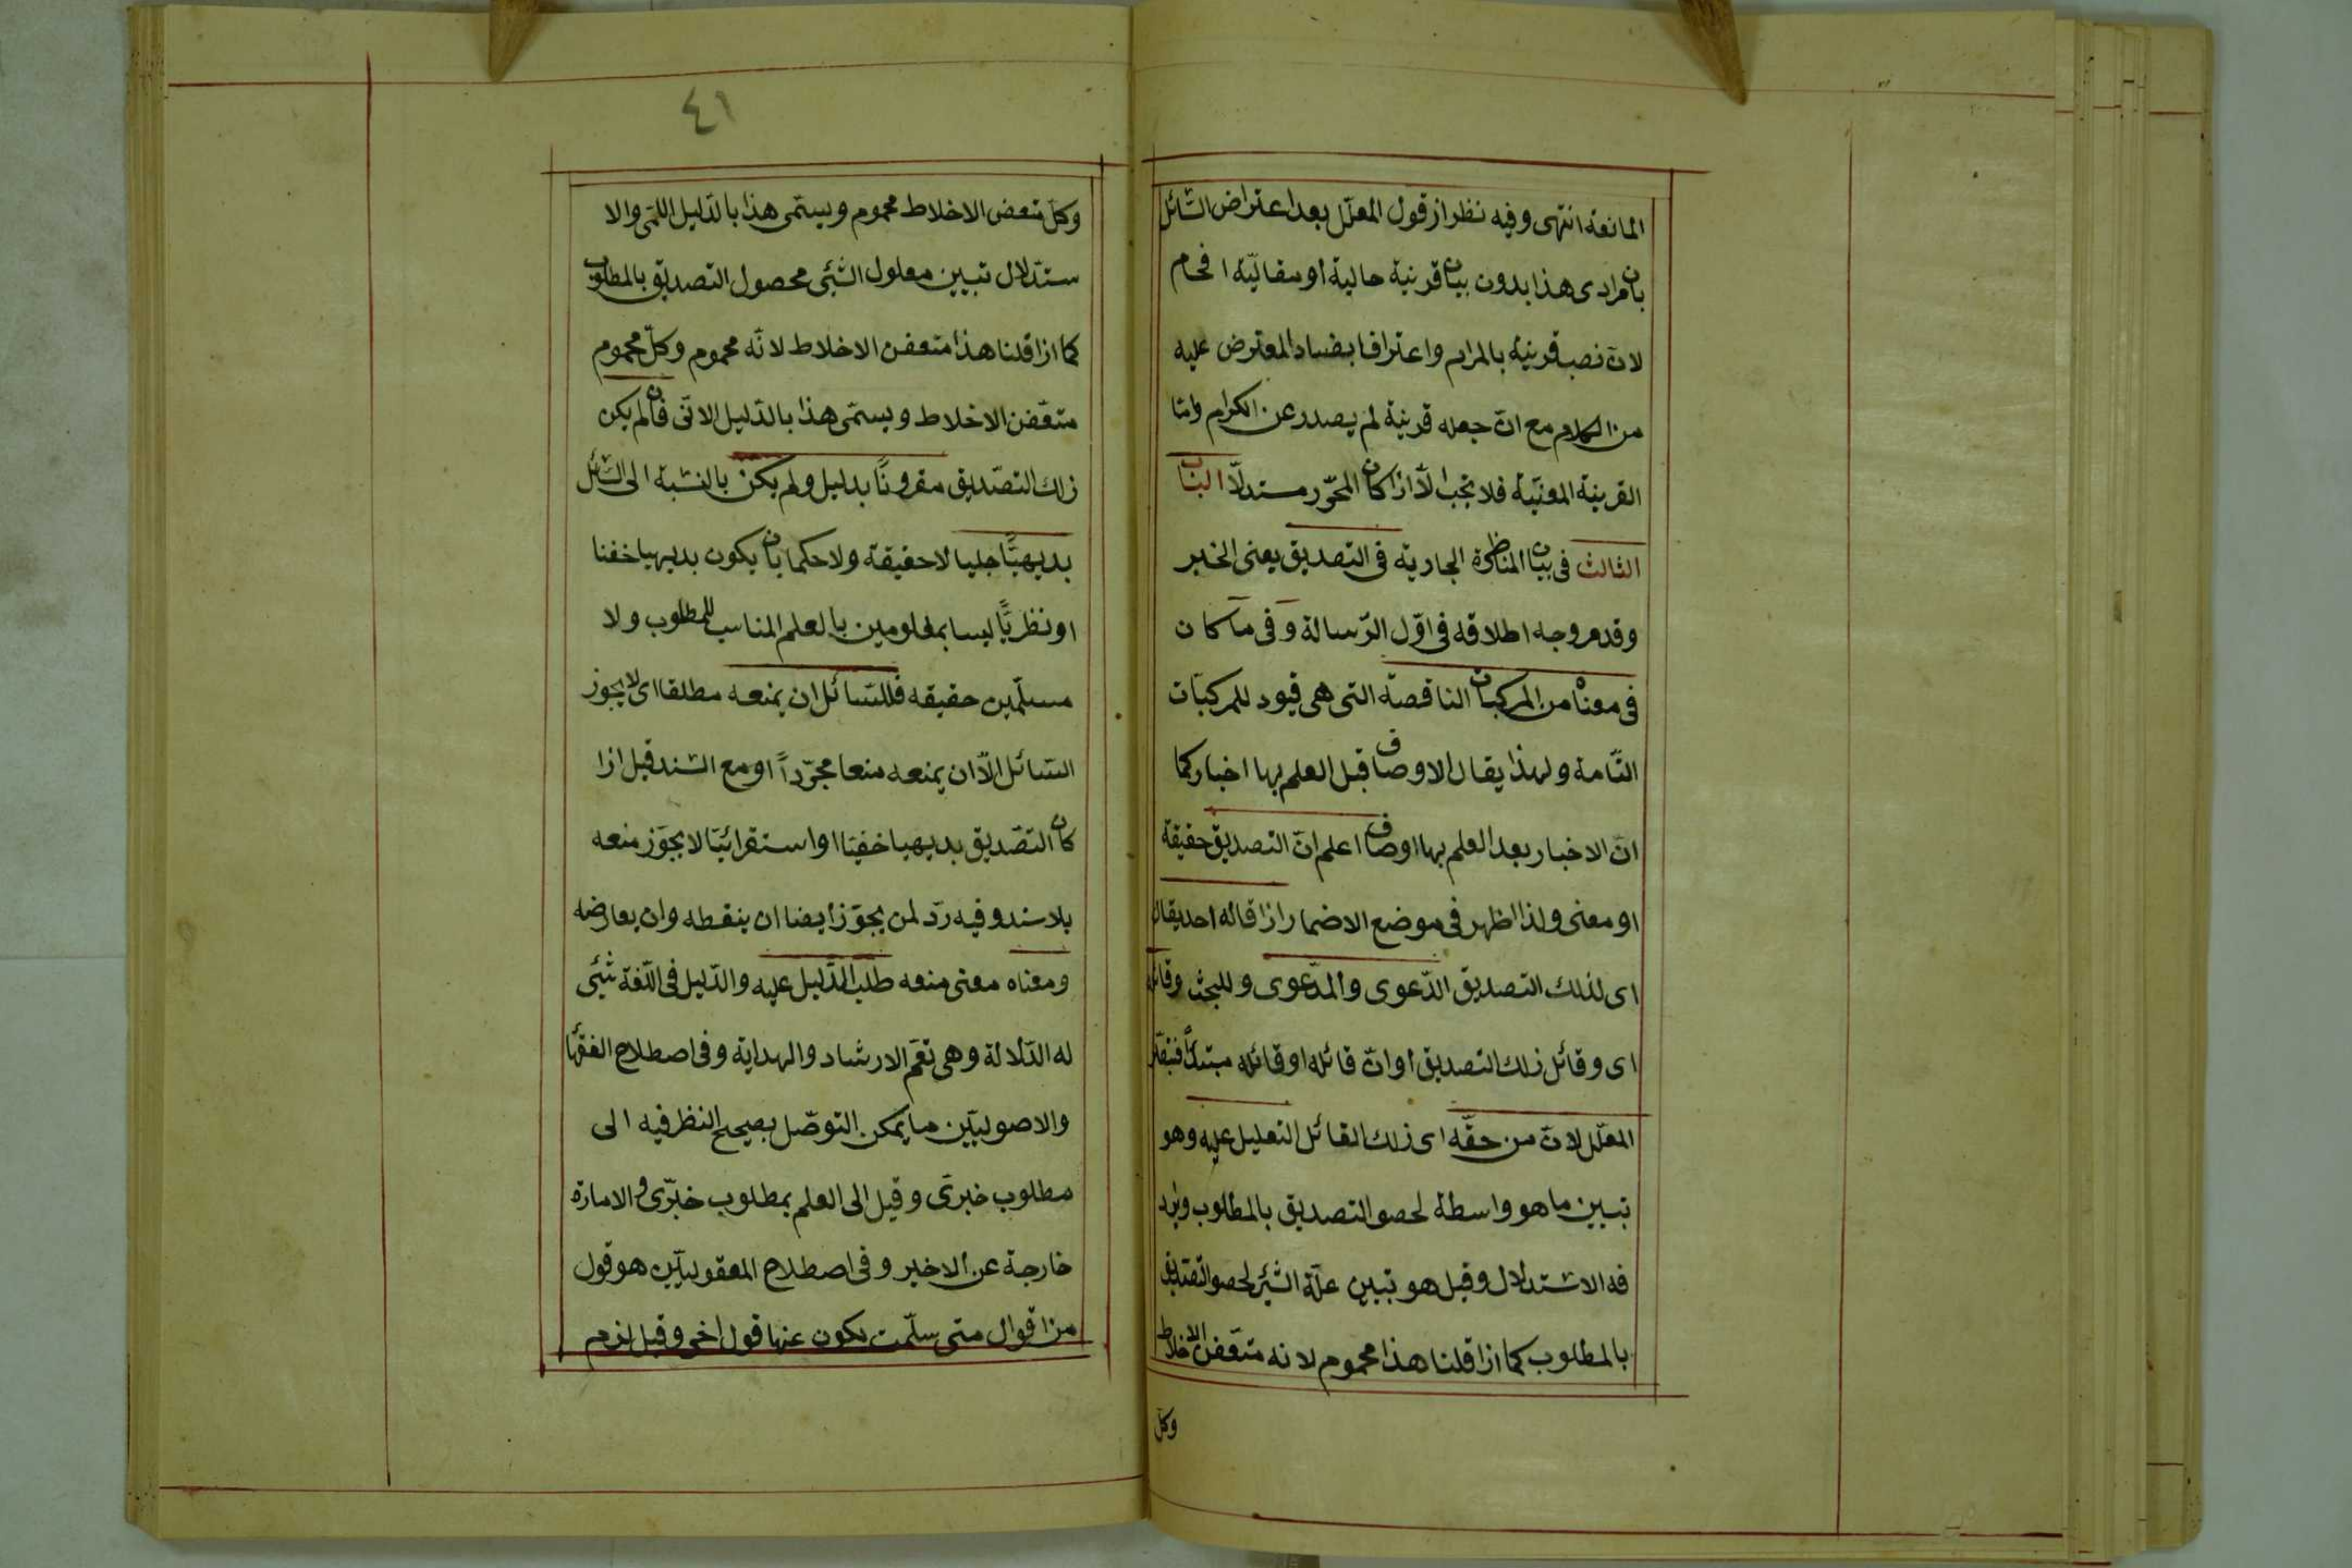 المانعة انتهى وفيه نظر از قول المعلّل بعد اعتراض السّائل
بان مرادى هذا بدون بيان قرينة حالية أو مقاليّة افحام
لانّ نصب قرينة بالمرام واعترافا بفساد المعترض عليه
من الكلام مع انّ جعله قرينة لم يصدر عن الكرام وامّا
القرينة المعنيّة فلا تجب الّا اذا كان المحرّر مستدلّا الباب
الثالث فى بيان المناظرة الجارية فى التصديق يعنى الخبر
وقد مر وجه اطلاقه فى اوّل الرّسالة وفى ما كان
فى معناه من المركبات الناقصة التى هى قيود للمركبّات
التّامة ولهذا يقال الاوصاف قبل العلم بها اخبار كما
انّ الاخبار بعد العلم بها اوصاف اعلم انّ التصديق حقيقة
او معنى ولذا اظهر فى موضع الاضمار اذا قاله احد يقال
اى لذلك التصديق الدّعوى والمدّعوى وللبحث وقائله
اى وقائل ذلك التصديق أو انّ قائله او قائله مبتدأ
المعلّل لانّ من حقّه اى ذلك القائل التعليل عليه وهو
تبيين ما هو واسطة لحصو التصديق بالمطلوب ويرد
فه الاستدلال وقيل هو تبيين علّة الشئ لحصو التصديق
بالمطلوب كما اذا قلنا هذا محموم لانه متعّفن الاخلاط
وكلّ
٤١
وكلّ متعفن الاخلاط محموم ويسمّى هذا بالدّليل اللمّى والا
ستدلال تبيين معلول الشئى محصول التصديق بالمطلوب
كما اذا قلنا هذا متعفن الاخلاط لانّه محموم وكلّ محموم
متعّفن الاخلاط ويسمّى هذا بالدّليل الانّى فان لم يكن
ذلك التصّديق مقرونًا بدليل ولم يكن بالنسّبة الى السّائل
بديهيًّا جليا لا حقيقة ولا حكما بان يكون بديهيا خفيا
او نظريًّا ليسا بمعلومين بالعلم المناسب للمطلوب ولا
مسلّمين حقيقه فللسّائل ان يمنعه مطلقا اى لا يجوز
السّائل الّا ان يمنعه منعا مجرّداً او مع السّند قيل اذا
كان التصّديق بديهيا خفيّا او استقرائيّا لا يجوّز منعه
بلا سند وفيه ردّ لمن يجوّز أيضا ان ينقضه وان يعارضه
ومعناه معنى منعه طلب الدّليل عليه والدّليل فى اللّغة شئى
له الدّلالة وهى تعّم الارشاد والهداية وفى اصطلاح الفقها
والاصولييّن ما يمكن التوصّل بصيحح النظر فيه الى
مطلوب خبرىّ وقيل الى العلم بمطلوب خبرّى والامارة
خارجة عن الاخير وفى اصطلاح المعقولييّن هو قول
من اقوال متى سلّمت يكون عنها قول اخر وقيل لزم